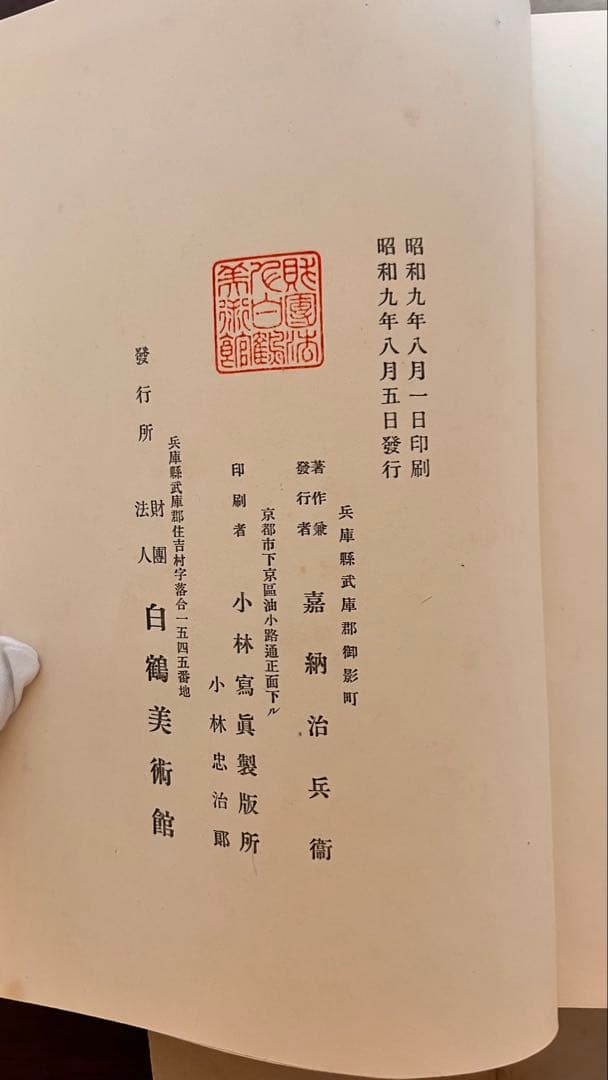 昭和九年八月一日印刷
昭和九年八月五日發行
兵庫縣武庫郡御影町
著作兼
發行者
嘉納治兵衞
京都市下京區油小路通正面下ル
印刷者
小林寫眞製版所
小林忠治郞
財團法
人白鶴
美術館
兵庫縣武庫郡住吉村字落合一五四五番地
發行所
財團
法人
白鶴美術館